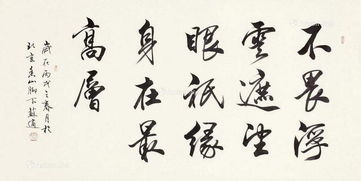 不畏浮
雲遮望
眼祇緣
身在最
高層
歲在丙戌之春月於
北京香山脚下蘇適